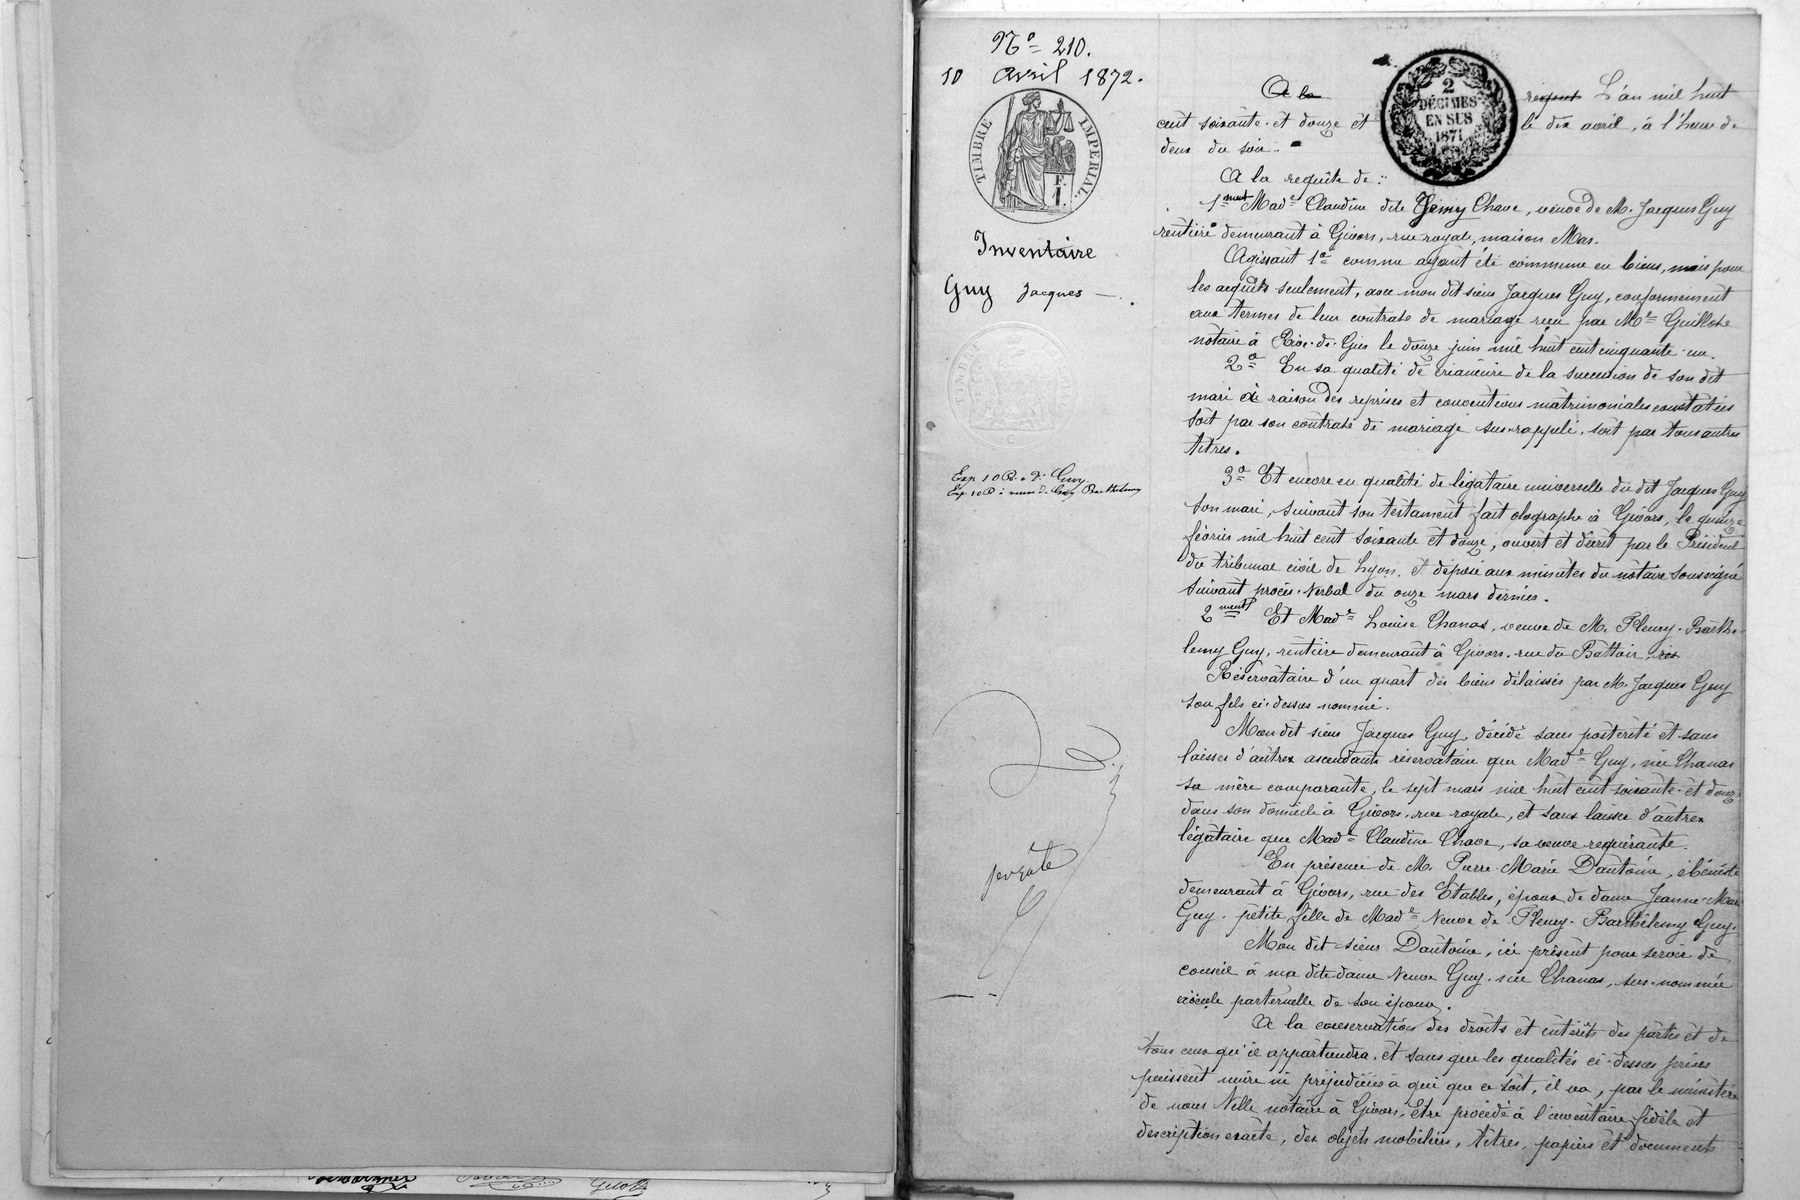 N° 210.
10 avril 1872.
TIMBRE IMPERIAL
F.
1.
Inventaire
Guy Jacques
Exp. 10 R. à Dᵉ Guy.
Exp. 10 R à veuve de Guy Barthelemy
2
DÉCIMES
EN SUS
1871
A la requet L'an mil huit
cent soixante-et douze et le dix avril, à l'heure de
deux du soir.
A la requête de :
1ment Made Claudine dite Jémy Chave, veuve de M. Jacques Guy
rentière demeurant à Givors, rue royale, maison Mas.
Agissant 1° comme ayant été commune en biens, mais pour
les acquêts seulement, avec mon dit sieur Jacques Guy, conformément
aux termes de leur contrat de mariage reçu par Me Guillot
notaire à Rive-de-Gier le douze juin mil huit cent cinquante-un.
2° En sa qualité de créancière de la succession de son dit
mari à raison des reprises et conventions matrimoniales constatées
soit par son contrat de mariage sus-rappelé, soit par tous autres
titres.
3° Et encore en qualité de légataire universelle du dit Jacques Guy
son mari, suivant son testament fait olographe à Givors, le quinze
février mil huit cent soixante et douze, ouvert et décrit par le Président
du tribunal civil de Lyon, et déposé aux minutes du notaire soussigné
suivant procès-verbal du onze mars dernier.
2ment Et Made Louise Chanas, veuve de M. Fleury-Barthe-
lemy Guy, rentière demeurant à Givors, rue du Battoir,
Réservataire d'un quart des biens délaissés par M. Jacques Guy
son fils ci-dessus nommé.
Mon dit sieur Jacques Guy, décédé sans postérité et sans
laisser d'autre ascendant réservataire que Made Guy, née Chanas
sa mère comparante, le sept mars mil huit cent soixante-et douze
dans son domicile à Givors, rue royale, et sans laisser d'autre
légataire que Made Claudine Chave, sa veuve requérante.
En présence de M. Pierre Marie Dantoine, ébéniste
demeurant à Givors, rue des Etables, époux de dame Jeanne-Marie
Guy, petite fille de Made Veuve de Fleury-Barthélemy Guy.
Mon dit sieur Dantoine, ici présent pour servir de
conseil à ma dite dame Veuve Guy née Chanas, sus-nommée
aïeule paternelle de son épouse.
A la conservation des droits et intérêts des parties et de
tous ceux qu'il appartiendra, et sans que les qualités ci-dessus prises
puissent nuire ni préjudicier à qui que ce soit, il va, par le ministère
de nous Nelle notaire à Givors, être procédé à l'inventaire fidèle et
description exacte, des objets mobiliers, titres, papiers et documents